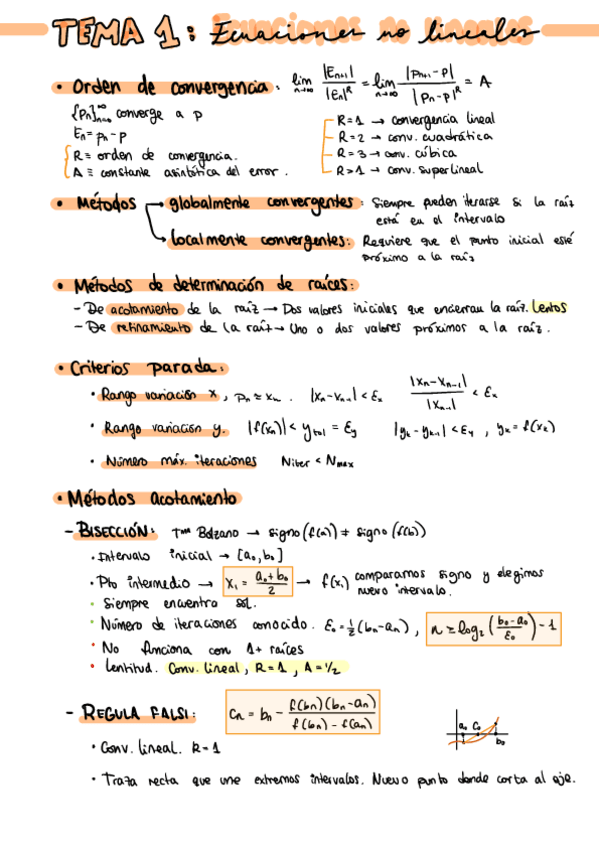 TEMA 1: Ecuaciones no lineales
• Orden de convergencia: lim n→∞ |En+1| / |En|^R = lim n→∞ |Pn+1 - p| / |Pn - p|^R = A
{Pn}∞n=0 converge a p
En = pn - p
R = orden de convergencia.
A ≡ constante asintótica del error.
R=1 → convergencia lineal
R=2 → conv. cuadrática
R=3 → conv. cúbica
R>1 → conv. superlineal
• Métodos → globalmente convergentes: Siempre pueden iterarse si la raíz
está en el intervalo
→ localmente convergentes: Requiere que el punto inicial esté
próximo a la raíz
• Métodos de determinación de raíces:
- De acotamiento de la raíz → Dos valores iniciales que encierran la raíz. Lentos
- De refinamiento de la raíz → Uno o dos valores próximos a la raíz.
• Criterios parada:
• Rango variación x, pn ≈ xn. |xn - xn-1| < εx |xn - xn-1| / |xn-1| < εx
• Rango variación y. |f(xn)| < ytol = εy |yk - yk-1| < εy, yk = f(xk)
• Número máx. iteraciones Niter < Nmax
• Métodos acotamiento
- BISECCIÓN: Tma Bolzano → signo(f(a)) ≠ signo(f(b))
• Intervalo inicial → [a0, b0]
• Pto intermedio → x1 = (a0 + b0) / 2 → f(x1) comparamos signo y elegimos
nuevo intervalo.
• Siempre encuentra sol.
• Número de iteraciones conocido. ε0 = 1/2 (bn - an), n ≥ log2((b0 - a0) / ε0) - 1
• No funciona con 1+ raíces
• Lentitud. Conv. lineal, R=1, A=1/2
- REGULA FALSI: cn = bn - f(bn)(bn - an) / f(bn) - f(an)
a0 c0
b0
• Conv. lineal. R=1
• Traza recta que une extremos intervalos. Nuevo punto donde corta al eje.